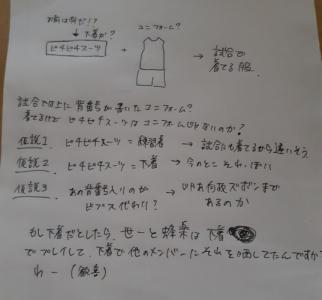 お前は何だ!?
↓下着か? ユニフォーム?
ピチピチスーツ + → 試合で
着てる服
試合では上に背番号が書いたユニフォーム?
着てるけど ピチピチスーツはユニフォームじゃないのか?
仮説1 ピチピチスーツ = 練習着 → 試合にも着てるから違いそう
仮説2 ピチピチスーツ = 下着 → 今のとこそれっぽい
仮説3 あの背番号入りのが ビブス代わり? → 何故ズボンまであるのか
もし下着だとしたら、世一と蜂楽は下着
でプレイして、下着で他のメンバーにそれを晒してたんですか
わー(歓喜)